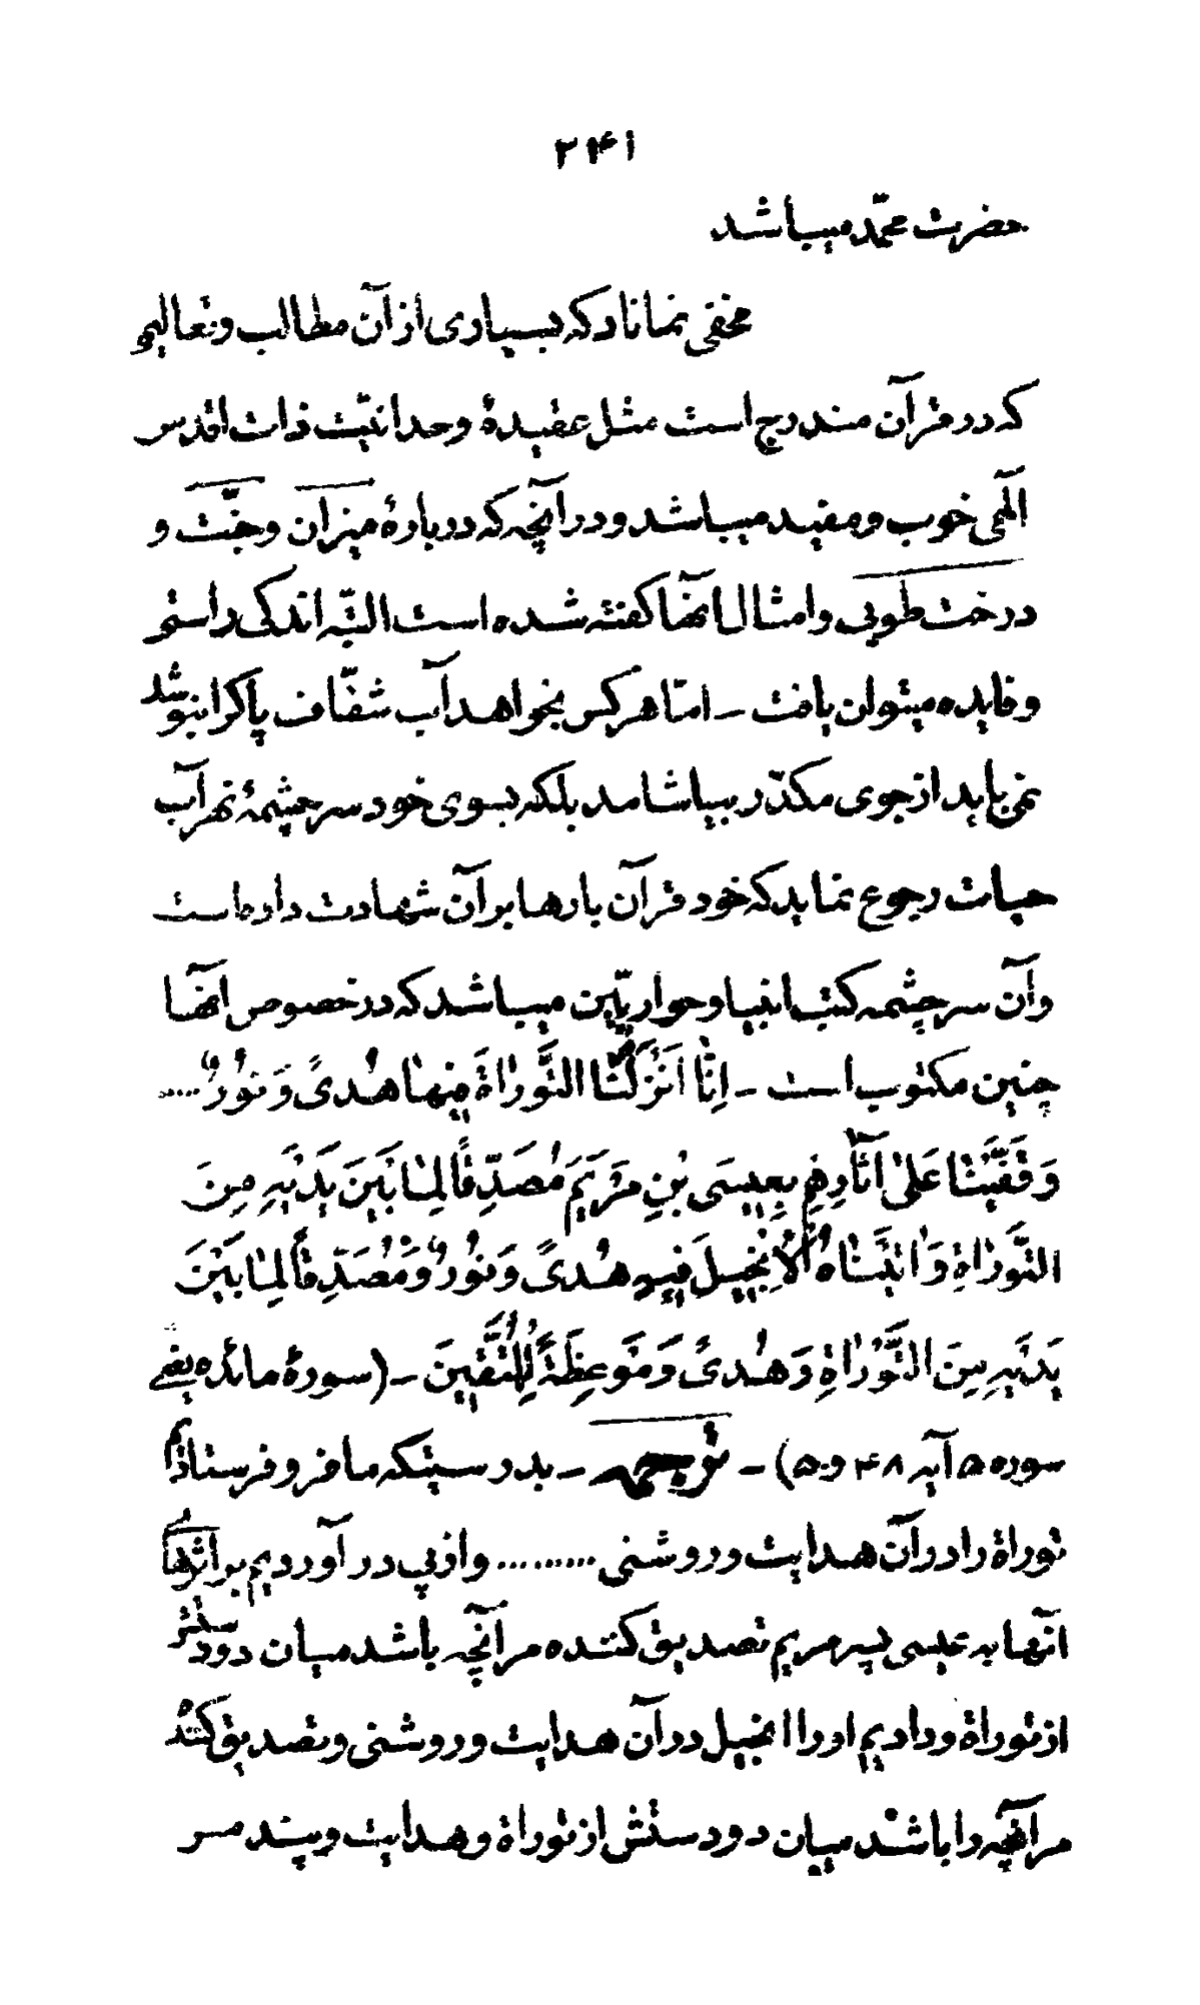 ۲۴۱
حضرت محمّد میباشد
مخفی نماناد که بسیاری از آن مطالب و تعالیم
که در قرآن مندرج است مثل عقیدۀ وحدانیّت ذات اقدس
الٓهی خوب و مفید میباشد و در آنچه که دربارۀ میزان و جنّت و
درخت طوبی و امثال انها کفته شده است البتّه اندکی راستی
و فایده میتوان یافت - امّا هرکس بخواهد آب شفّاف پاکرا بنوشد
نمی باید از جوی مکدّر بیاشامد بلکه بسوی خود سرچشمۀ نهر آب
حیات رجوع نماید که خود قرآن بارها بر آن شهادت داده است
و آن سرچشمه کتب انبیا و حواریّین میباشد که در خصوص انها
چنین مکتوب است - اِنّٰا اَنْزَلْنَا التَّوْرٰاةَ فِیهٰا هُدیً وَ نُورٌ ....
وَ قَفَّیْنٰا عَلیٰ اٰثٰارِهِمْ بِعِیسَی بْنِ مَرْیَمَ مُصَدِّقًا لِمٰا بَیْنَ یَدَیْهِ مِنَ
التَّوْرٰاةِ وَ اٰتَیْنٰاهُ الْاِنْجِیلَ فِیهِ هُدیً وَ نُورٌ وَ مُصَدِّقًا لِمٰا بَیْنَ
یَدَیْهِ مِنَ التَّوْرٰاةِ وَ هُدیً وَ مَوْعِظَةً لِلْمُتَّقِینَ - (سورۀ مائده یعنی
سوره ۵ آیه ۴۸ و ۵۰) - ترجمه - بدرستیکه ما فرو فرستادیم
توراة را در آن هدایت و روشنی ......... و از پی در آوردیم بر اثرهای
آنها به عیسی پسر مریم تصدیق کننده مر آنچه باشد میان دو دستش
از توراة و دادیم او را انجیل در آن هدایت و روشنی و تصدیق کننده
مر آنچه را باشد میان دو دستش از توراة و هدایت و پند مر